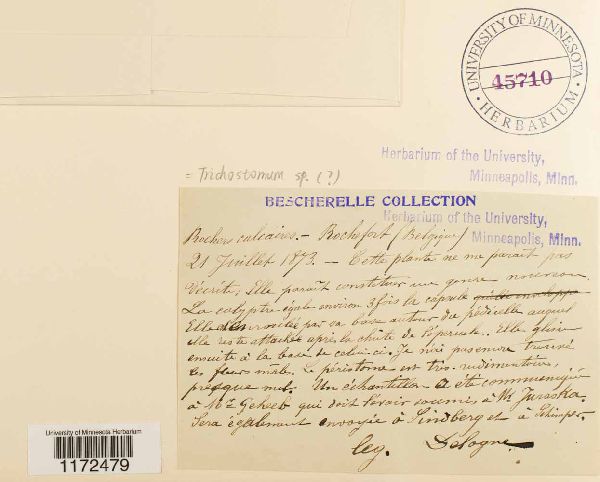 UNIVERSITY OF MINNESOTA
45710
HERBARIUM
Herbarium of the University,
Minneapolis, Minn.
= Trichostomum sp. (?)
BESCHERELLE COLLECTION
Herbarium of the University,
Minneapolis, Minn.
Rochers calcaires. — Rochefort (Belgique)
21 Juillet 1873. — Cette plante ne me parait pas
décrite, Elle parait constituer un genre nouveau.
La calyptre égale environ 3 fois la capsule
Elle par sa base autour du pédicelle auquel
elle reste attachée après la chûte de l'opercule. Elle glisse
ensuite à la base de celui-ci. Je n'ai pas encore trouvé
les fleurs mâle. Le péristome est très-rudimentaire,
presque nul. Un échantillon a été communiqué
à Mr Geheeb qui doit l'avoir soumis à Mr Juratzka.
Sera également envoyée à Lindberg et à Schimper.
leg. Delogne
University of Minnesota Herbarium
1172479